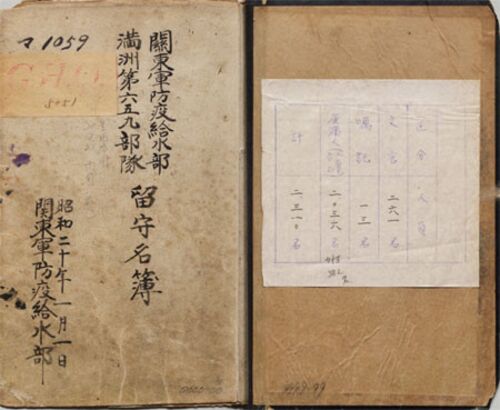 マ1059
5451
關東軍防疫給水部
満洲第六五九部隊
留守名簿
昭和二十年一月一日
関東軍防疫給水部
区分 人員
文官 二六一名
嘱託 一三名
二〇三六名
計 二三一〇名